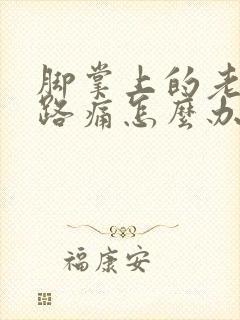 脚掌上的老
路痛怎麼办
福康安